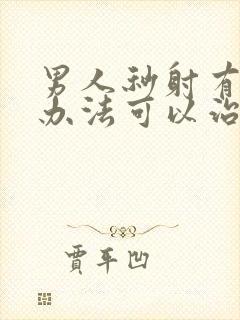 男人秒射有
办法可以治
贾平凹